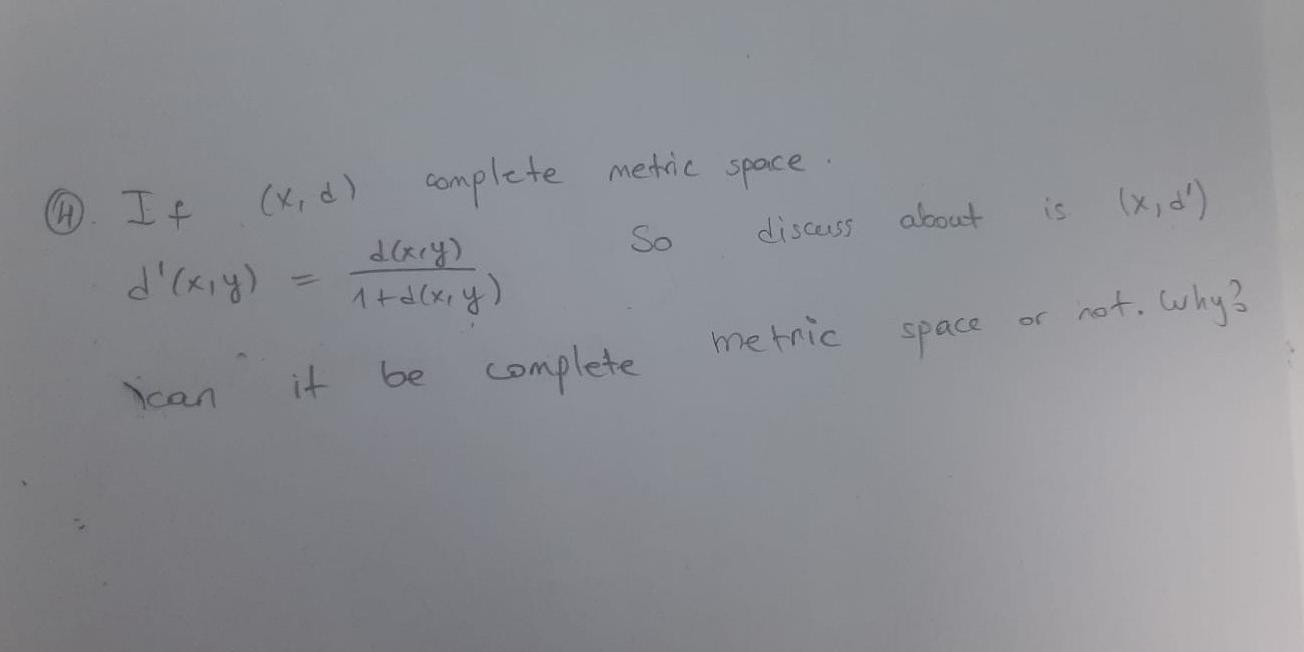 ④. If (x, d) complete metric space.
d'(x,y) = d(x,y) / 1+d(x,y) So discuss about is (x, d')
can it be complete metric space or not. Why?